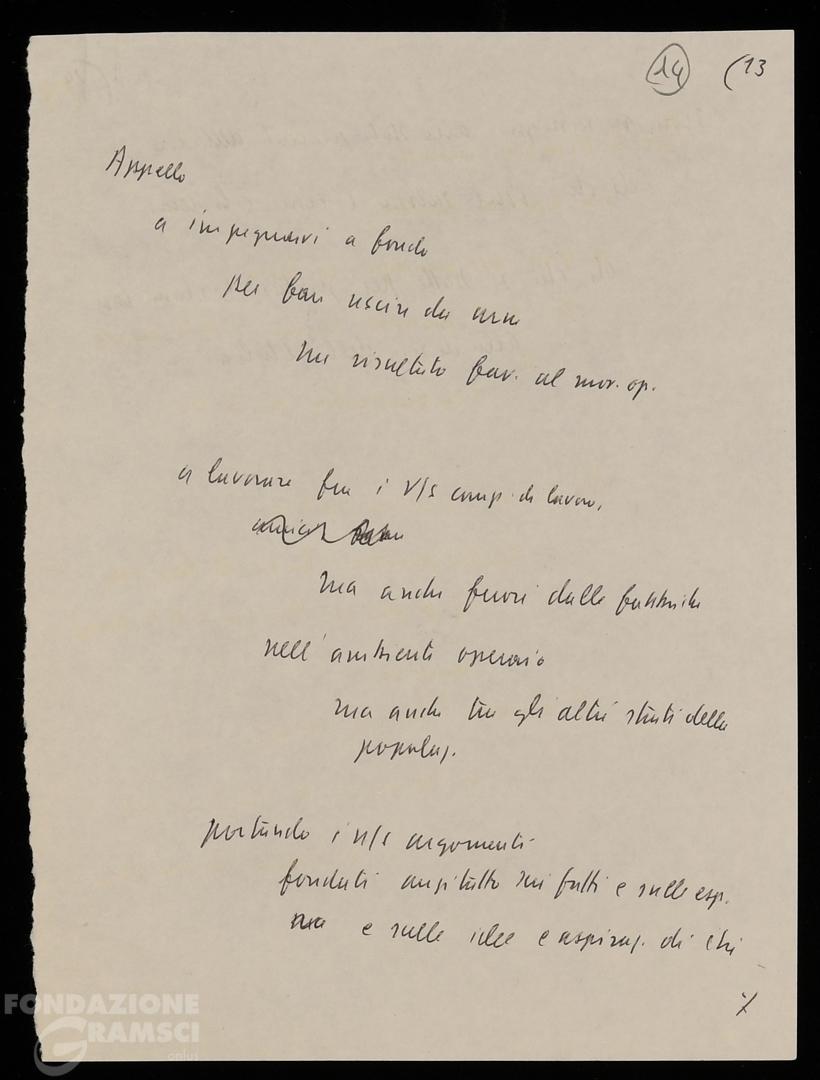 14 (13
Appello
a impegnarvi a fondo
per far uscire da urne
un risultato fav. al mov. op.
a lavorare fra i v/s comp. di lavoro,
ma anche fuori dalle fabbriche
nell'ambiente operaio
ma anche tra gli altri strati della
popolaz.
portando i n/s argomenti
fondati anzitutto sui fatti e sulle esp.
e sulle idee e aspiraz. di chi
./.
FONDAZIONE
GRAMSCI
onlus